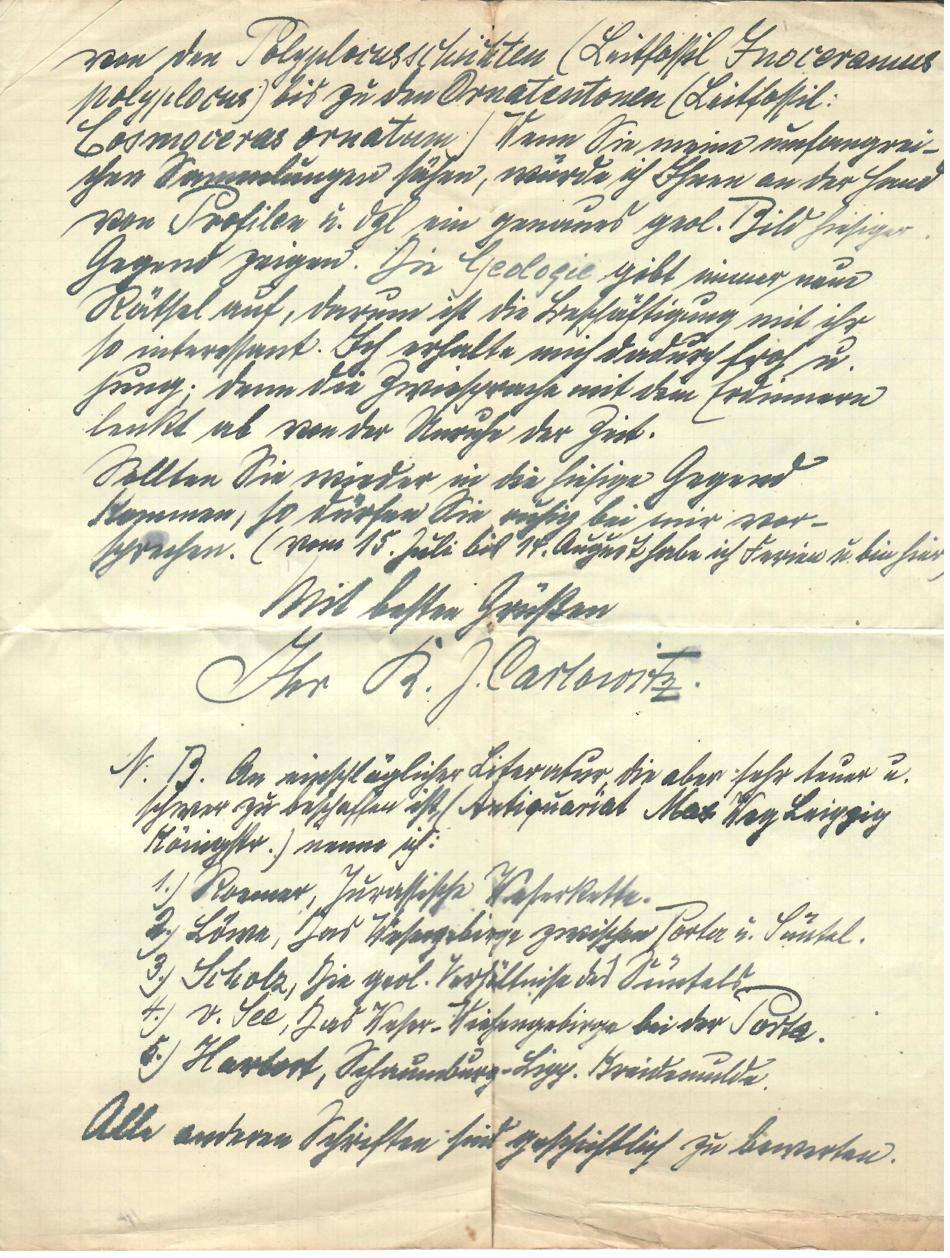 von den Polyplocusschichten (Leitfossil Inoceramus
polyplocus) bis zu den Ornatentonen (Leitfossil:
Cosmoceras ornatum.) Wenn Sie meine umfangrei-
chen Sammlungen sähen, würde ich Ihnen an der Hand
von Profilen u. dgl ein genaues geol. Bild hiesiger
Gegend zeigen. Die Geologie gibt immer neue
Rätsel auf, darum ist die Beschäftigung mit ihr
so interessant. Ich erhalte mich dadurch frisch u.
jung; denn die Zwiesprache mit dem Erdinnern
lenkt ab von der Unruhe der Zeit.
Sollten Sie wieder in die hiesige Gegend
kommen, so dürfen Sie ruhig bei mir vor-
sprechen. (vom 15. Juli bis 14. August habe ich Ferien u. bin hier)
Mit besten Grüßen
Ihr K. J. Carlowitz.
N. B. An einschläglicher Literatur, die aber sehr teuer u.
schwer zu beschaffen ist, (Antiquariat Max Weg Leipzig
Königstr.) nenne ich:
1.) Roemer, Jurassische Weserkette.
2.) Löwe, Das Wesergebirge zwischen Porta u. Süntel.
3.) Scholz, Die geol. Verhältnisse des Süntels
4.) v. See, Das Weser-Wiehengebirge bei der Porta.
5.) Harbort, Schaumburg-Lipp. Kreidemulde.
Alle anderen Schriften sind geschichtlich zu bewerten.